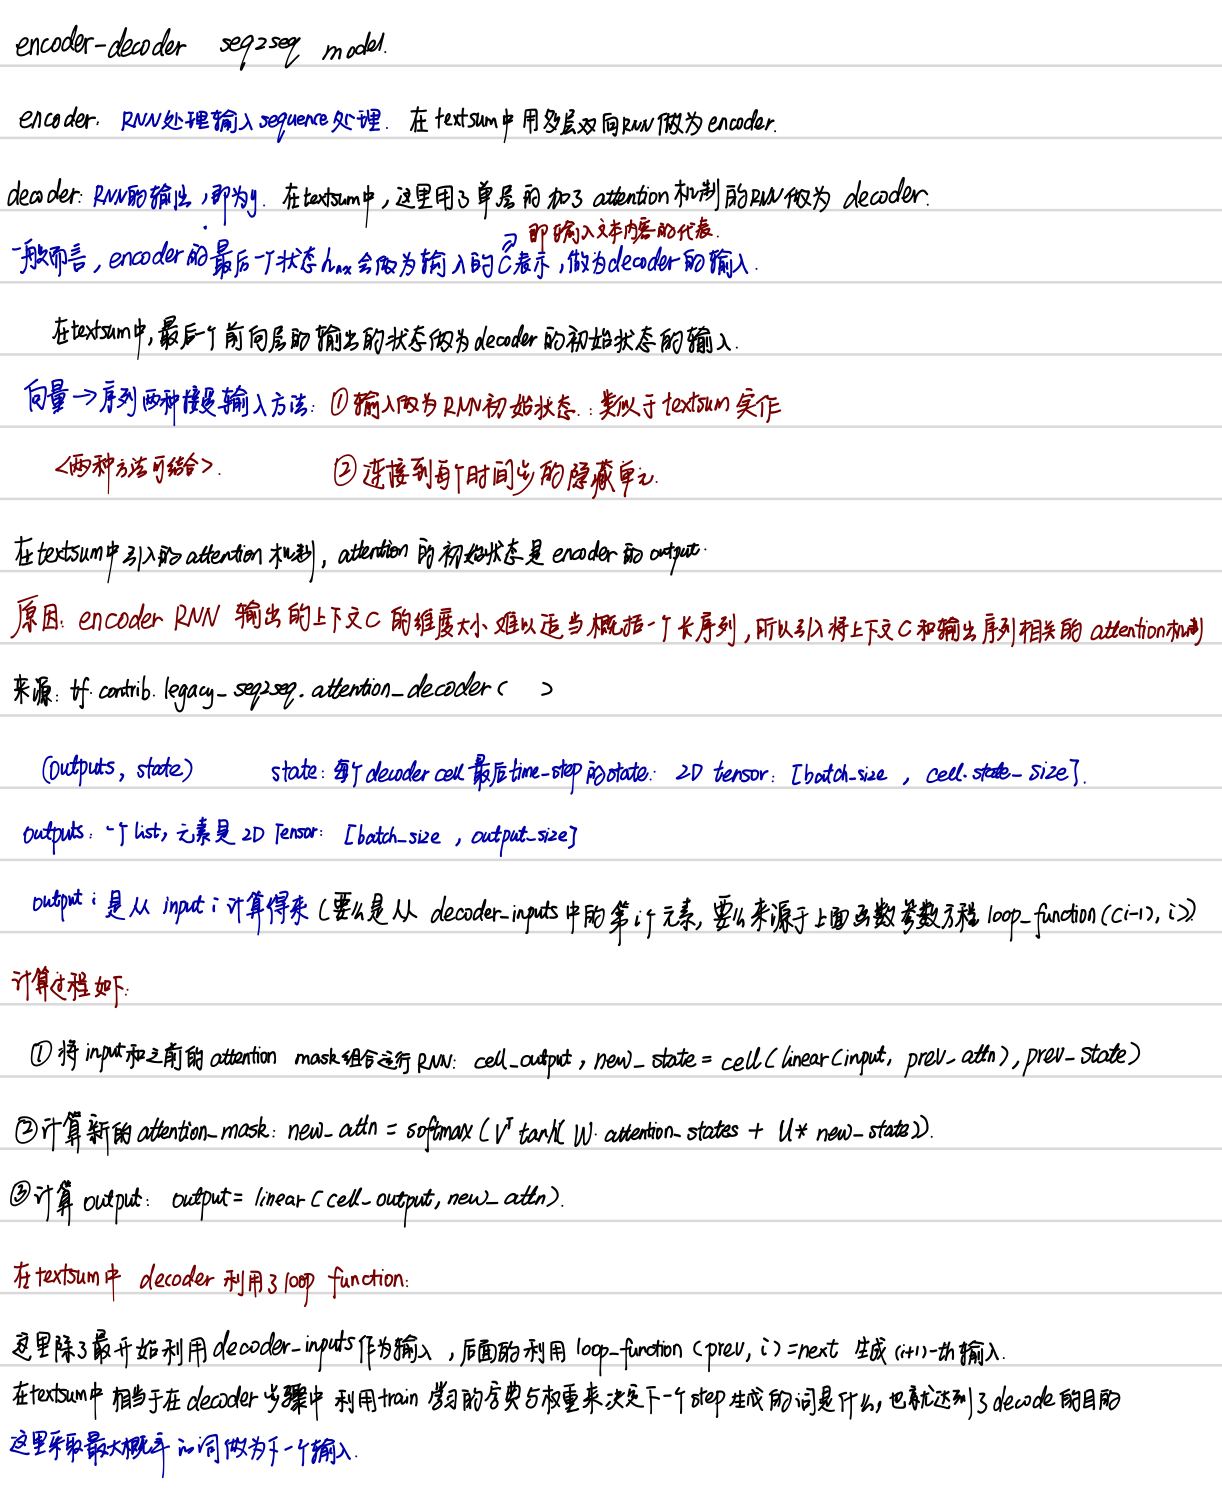 encoder-decoder seq2seq model.
encoder: RNN处理输入sequence处理. 在textsum中用多层双向RNN做为encoder.
decoder: RNN的输出,即为y. 在textsum中,这里用了单层的加了attention机制的RNN做为 decoder.
即输入文本内容的代表.
一般而言, encoder的最后一个状态hnx会做为输入的C表示,做为decoder的输入.
在textsum中,最后一个前向层的输出的状态做为decoder的初始状态的输入.
向量→序列两种接受输入方法: ①输入做为RNN初始状态.: 类似于textsum实作
<两种方法可结合>. ②连接到每个时间步的隐藏单元.
在textsum中引入的attention机制, attention的初始状态是encoder的output.
原因: encoder RNN 输出的上下文C的维度大小难以适当概括一个长序列,所以引入将上下文C和输出序列相关的attention机制
来源: tf.contrib.legacy_seq2seq.attention_decoder( )
(outputs, state) state: 每个decoder cell最后time-step的state: 2D tensor: [batch_size , cell.state_size].
outputs: 一个list,元素是2D Tensor: [batch_size , output_size]
output i 是从 input i 计算得来 (要么是从 decoder_inputs中的第i个元素, 要么来源于上面函数参数方程 loop_function(ci-1), i).)
计算过程如下:
①将input和之前的attention mask组合运行RNN: cell_output, new_state = cell(linear(input, prev_attn), prev_state)
②计算新的attention_mask: new_attn = softmax(V^T tanh( W· attention_states + U* new_state)).
③计算output: output = linear(cell_output, new_attn).
在textsum中 decoder利用了loop function:
这里除了最开始利用decoder_inputs作为输入 ,后面的利用 loop-function (prev, i) = next 生成 (i+1)-th输入.
在textsum中相当于在decoder步骤中利用train学习的字典与权重来决定下一个step生成的词是什么,也就达到了decode的目的
这里采取最大概率的词做为下一个输入.